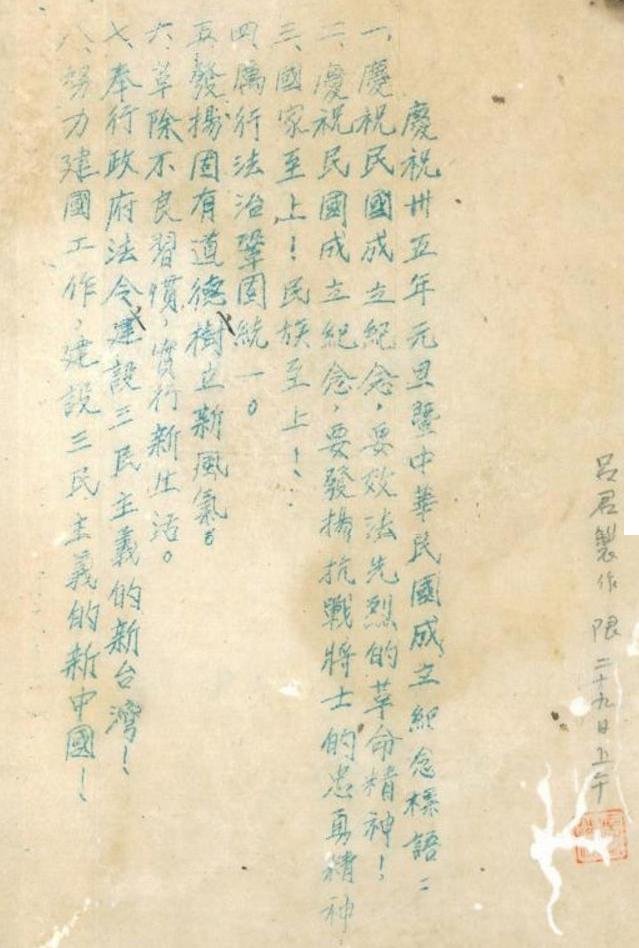 呂君製作 限二十九日上午
慶祝卅五年元旦暨中華民國成立紀念標語:
一、慶祝民國成立紀念，要效法先烈的革命精神！
二、慶祝民國成立紀念，要發揚抗戰將士的忠勇精神
三、國家至上！民族至上！
四、厲行法治鞏固統一。
五、發揚固有道德樹立新風氣。
六、革除不良習慣，實行新生活。
七、奉行政府法令建設三民主義的新台灣！
八、努力建國工作，建設三民主義的新中國！